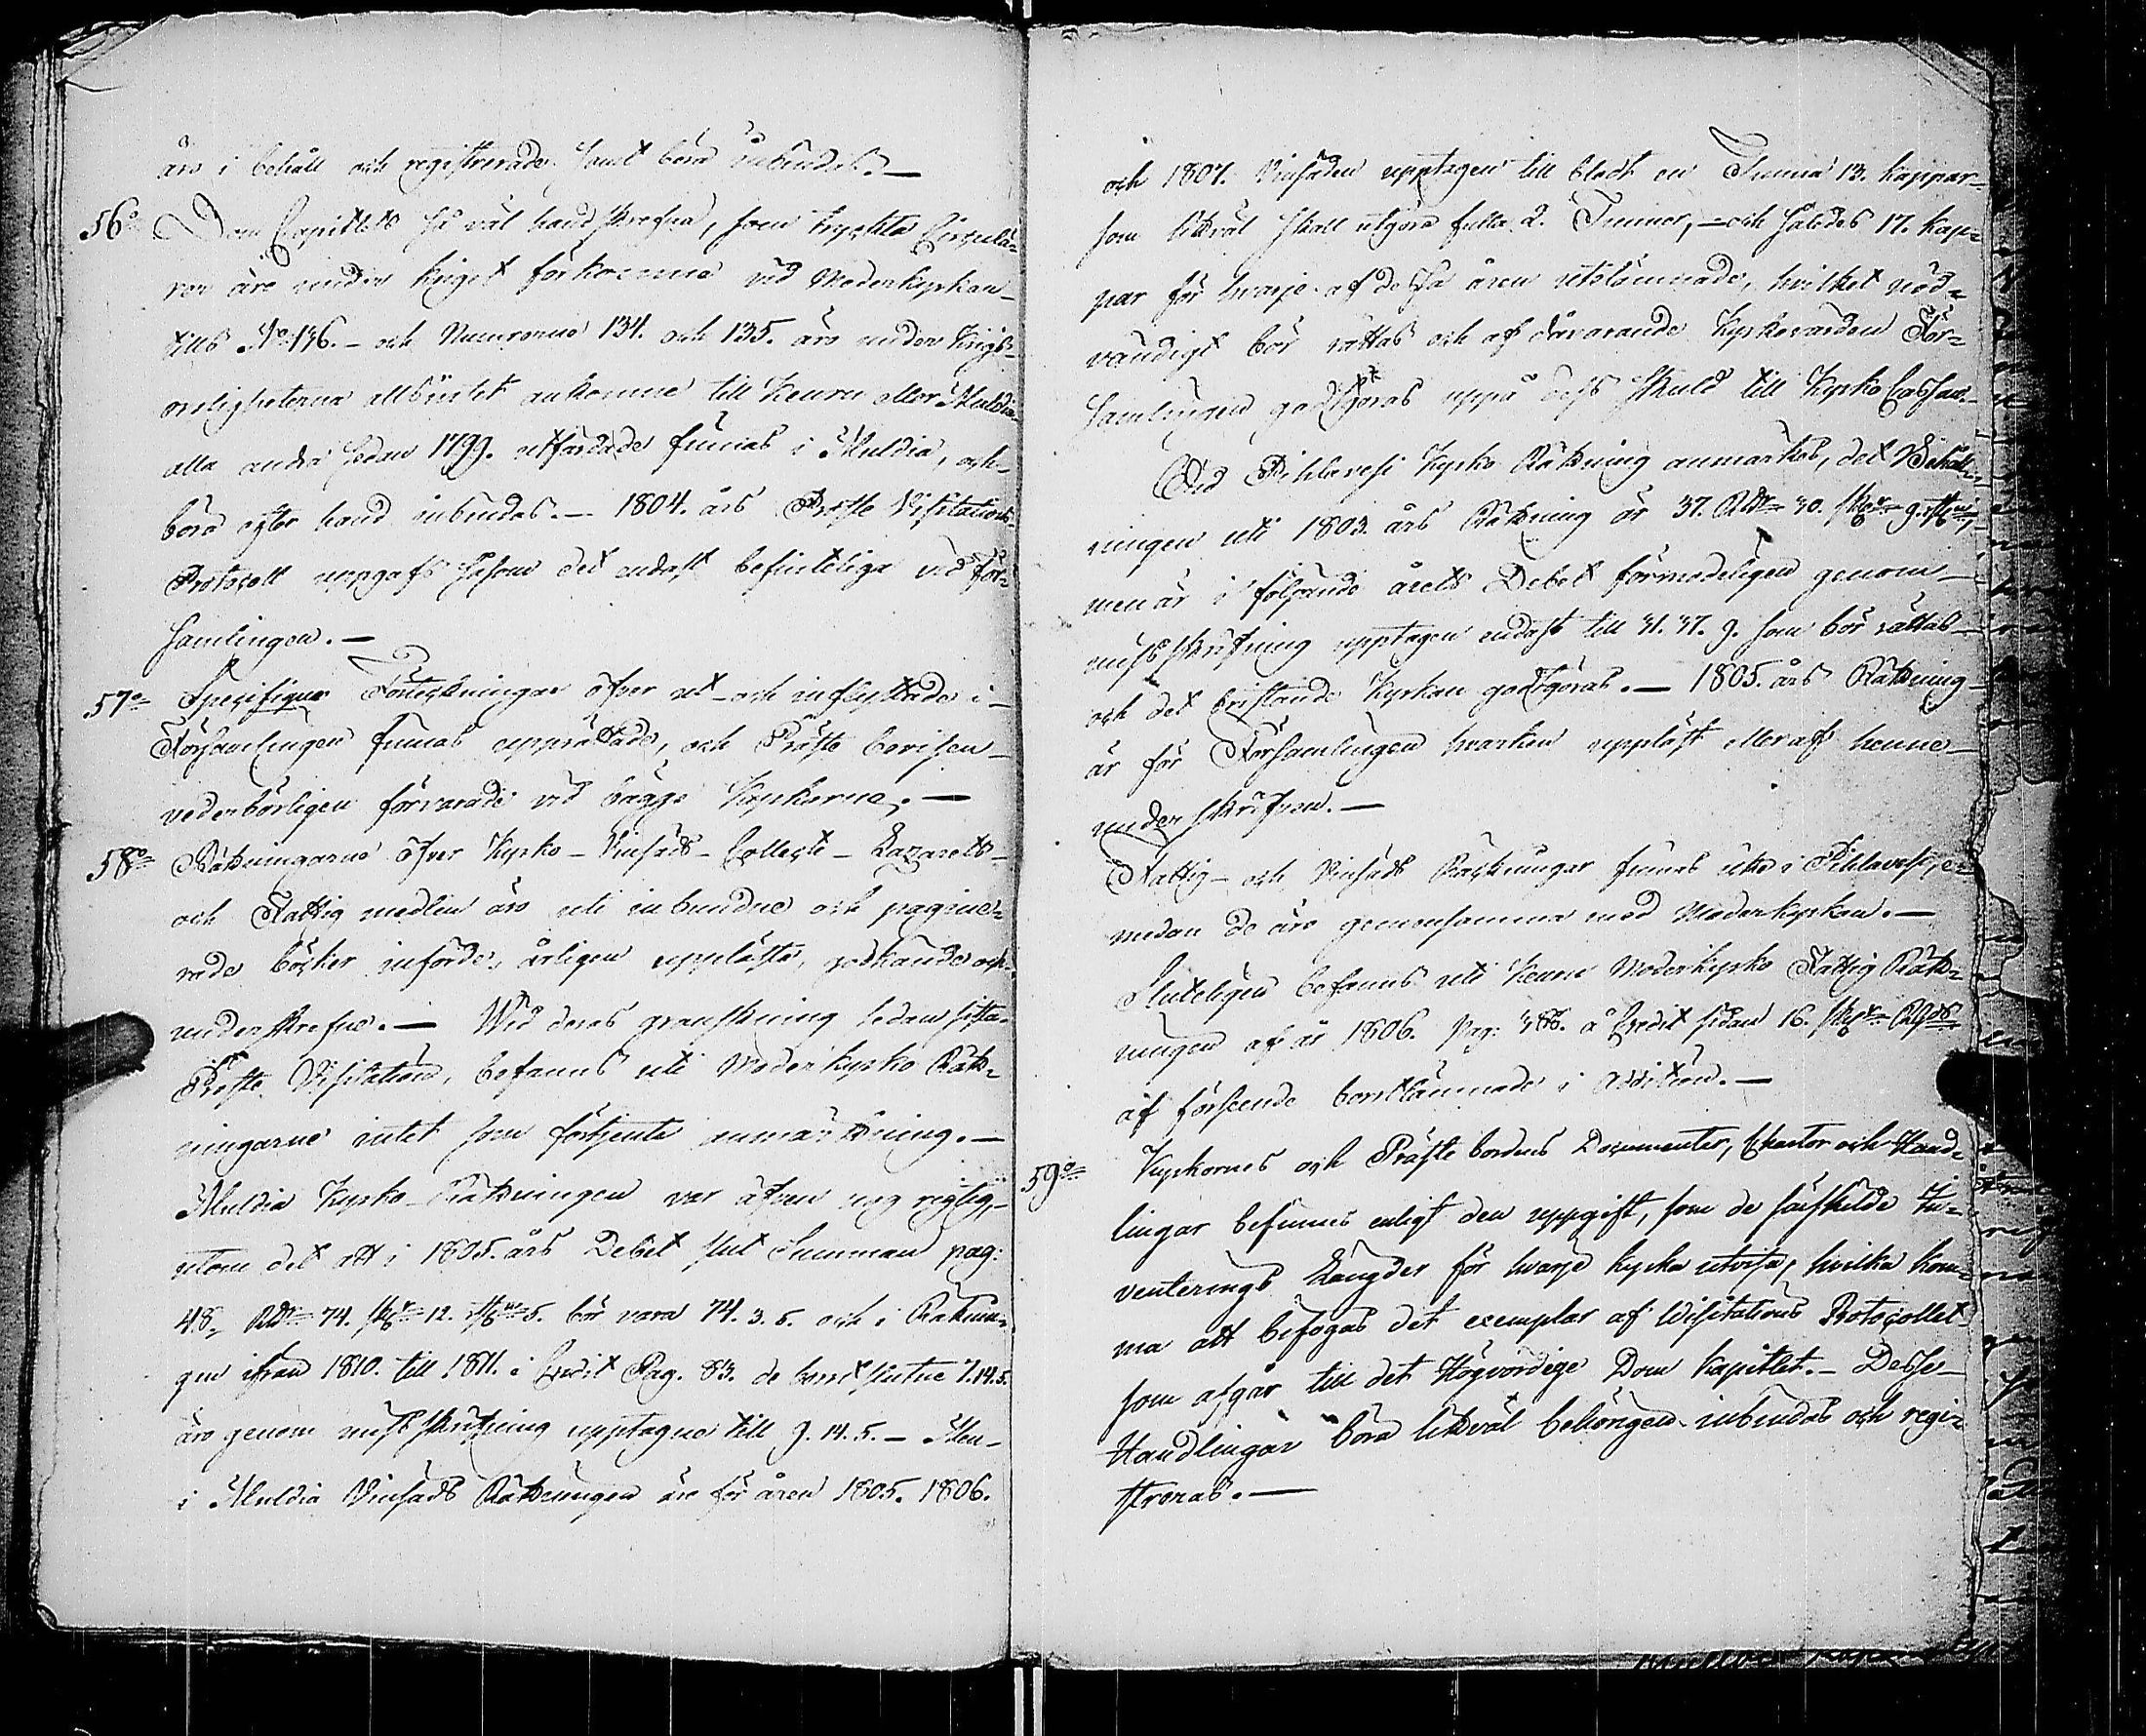 äro i behåll och registrerade samt böra inbindas. —
56:o Dom Capitlets så väl handskrefna, som tryckta Circulä=
rer äro under kriget förkomne vid Moderkyrkan
tills No 136. – och Numrorne 134. och 135. äro under Krigs-
oroligheterna allsintet ankomne till Keuru eller Multia
alla andra sedan 1799. utfärdade finnas i Multia, och
böra efter hand inbindas. – 1804. års Prosts Visitations
Protocoll uppgafs såsom det endast befinteliga vid För=
samlingen. —
57:o Specifique Förteckningar öfver ut- och inflyttade i
Församlingen finnas upprättade, och Präste bevisen
vederbörligen förvarade vid bägge Kyrkorne. —
58:o Räkningarne öfver Kyrko- Vinsäds- Collecte- Lazaretts-
och Fattig medlen äro uti inbundne och pagine=
rade böcker införde, årligen uppläste, godkände och
underskrefne. — Wid deras granskning sedan sista
Prosts Visitation, befanns uti Moderkyrko Räk=
ningarne intet som förtjente anmärkning. —
Multia Kyrko-Räkningen var äfven nog rigtig,
utom det att i 1805. års Debet slut Summan pag:
48. Rdr 74. sk 12. rst 5. bör vara 74. 3. 5. och i Räknin=
gen ifrån 1810. till 1811. i Credit Pag. 83. de 7.14.5.
äro genom misskrifning upptagne till 9. 14. 5. – Men
i Multia Vinsäds Räkningen äro för åren 1805. 1806.
och 1807. Vinsäden upptagen till blott en Tunna 13. kappar
som likväl skall utgöra fulla 2. Tunnor, – och således 17. kap=
par för hvarje af dessa åren utelämnade, hvilket nöd=
vändigt bör rättas och af dåvarande Kyrkovärden För=
samlingen godtgöras uppå dess skuld till Kyrko Cassan.
Vid Pihlavesi Kyrko Räkning anmärkes, det Behåll=
ningen uti 1803. års Räkning är 37. Rdr 30. sk 9. rst,
men är i följande årets Debet förmodeligen genom
misskrifning upptagen endast till 31. 37. 9. som bör rättas
och det bristande Kyrkan godtgöras. — 1805. års Räkning
är för Församlingen hvarken uppläst eller af henne
underskrifven. —
Fattig- och Vinsäds Räkningar finnas icke i Pihlavesi, e=
medan de äro gemensamma med Moderkyrkan. —
Sluteligen befanns uti Keuru Moderkyrko Fattig Räk=
ningen af år 1806. pag: 386. å Credit sidan 16. sk Rgds
af förseende bortlämnade i Addition. —
59:o Kyrkornes och Präste bordens Documenter, Chartor och Hand=
lingar befinnes enligt den uppgift, som de särskilde In=
venterings Längder för hvarje kyrka utvisa, hvilka kom=
ma att bifogas det exemplar af Visitations Protocollet
som afgår till det Högvördige Dom Kapitlet. – Desse
Handlingar böra likväl behörigen inbindas och regi=
streras. —